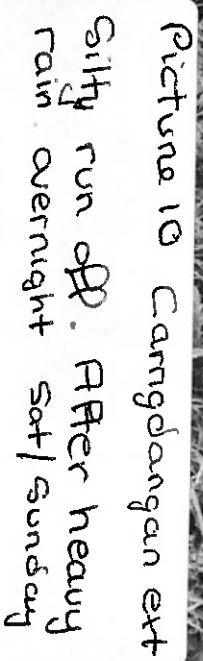 Picture 10 Carrigdangan ext
Silty run off. After heavy
rain overnight sat/Sunday